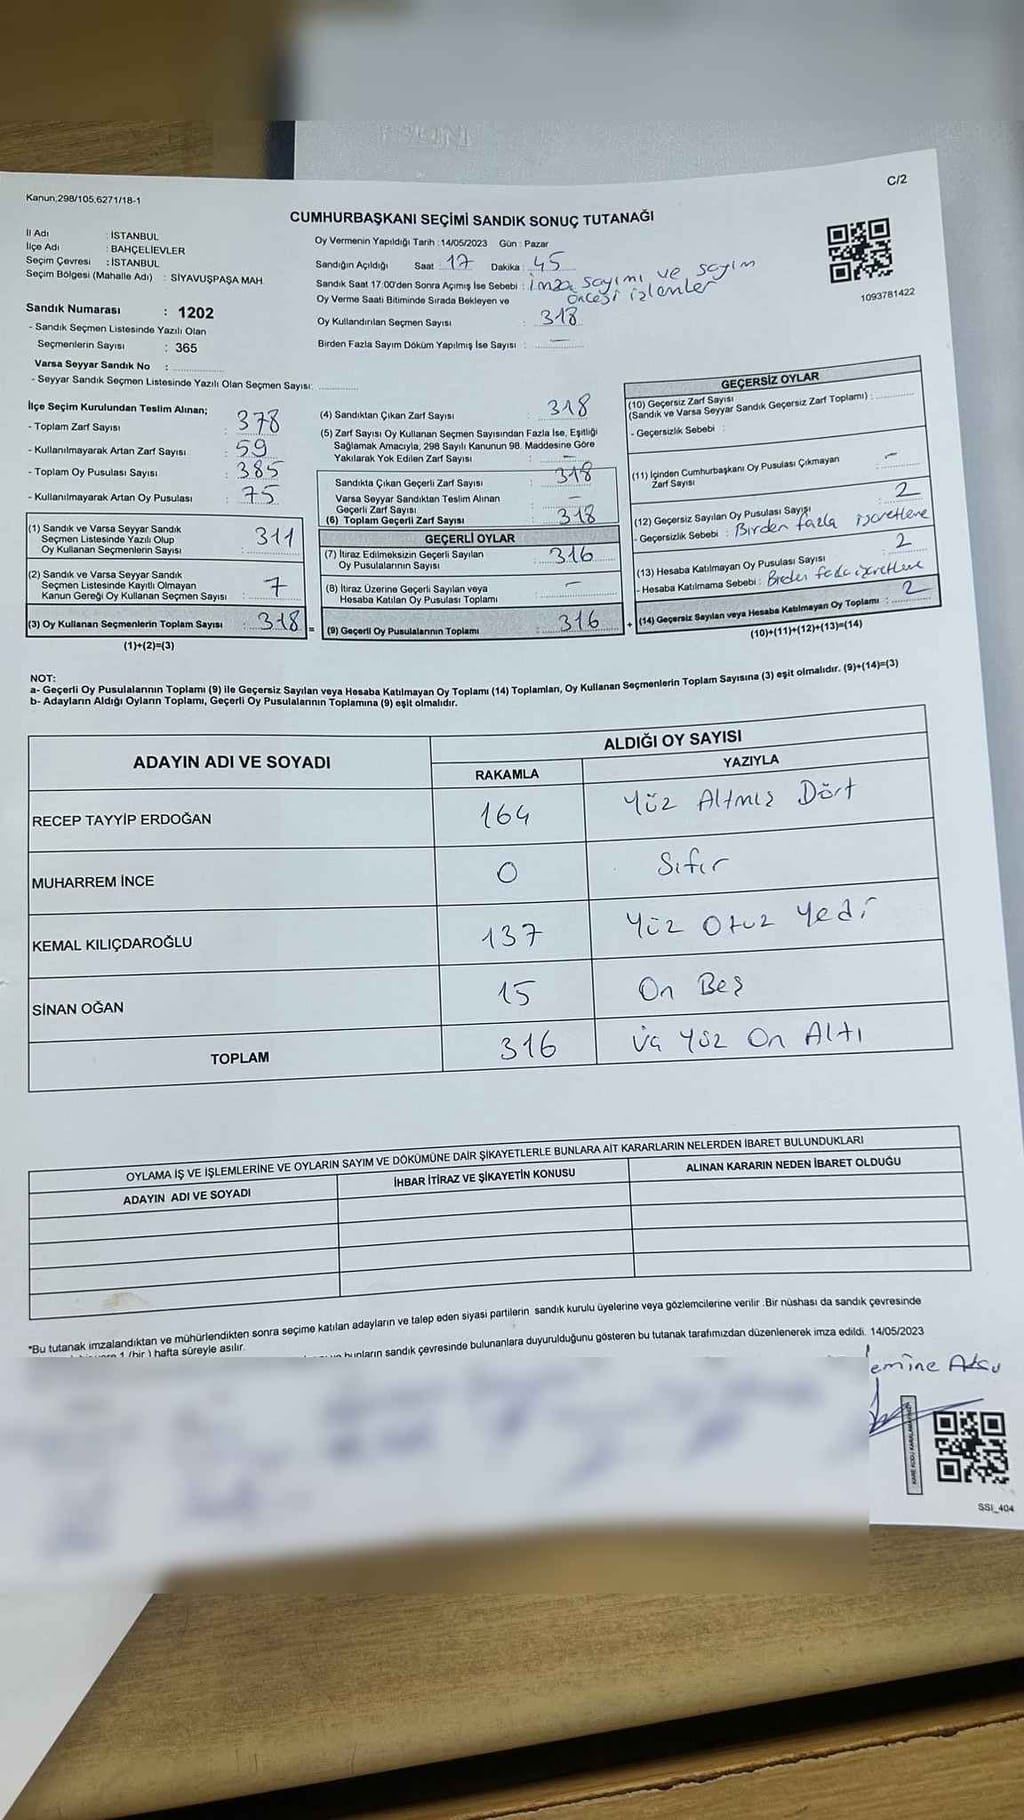 C/2
Kanun;298/105,6271/18-1
CUMHURBAŞKANI SEÇİMİ SANDIK SONUÇ TUTANAĞI
İl Adı : İSTANBUL
İlçe Adı : BAHÇELİEVLER
Seçim Çevresi : İSTANBUL
Seçim Bölgesi (Mahalle Adı) : SİYAVUŞPAŞA MAH
Oy Vermenin Yapıldığı Tarih : 14/05/2023 Gün : Pazar
Sandığın Açıldığı Saat 17 Dakika : 45
Sandık Saat 17.00'den Sonra Açımış İse Sebebi : İmza sayımı ve sayım
öncesi izlemler
Oy Verme Saati Bitiminde Sırada Bekleyen ve
Oy Kullandırılan Seçmen Sayısı : 318
Birden Fazla Sayım Döküm Yapılmış İse Sayısı : —
1093781422
Sandık Numarası : 1202
- Sandık Seçmen Listesinde Yazılı Olan
Seçmenlerin Sayısı : 365
Varsa Seyyar Sandık No : ...............
- Seyyar Sandık Seçmen Listesinde Yazılı Olan Seçmen Sayısı: ............
İlçe Seçim Kurulundan Teslim Alınan;
- Toplam Zarf Sayısı : 378
- Kullanılmayarak Artan Zarf Sayısı : 59
- Toplam Oy Pusulası Sayısı : 385
- Kullanılmayarak Artan Oy Pusulası : 75
(1) Sandık ve Varsa Seyyar Sandık
Seçmen Listesinde Yazılı Olup
Oy Kullanan Seçmenlerin Sayısı : 311
(2) Sandık ve Varsa Seyyar Sandık
Seçmen Listesinde Kayıtlı Olmayan
Kanun Gereği Oy Kullanan Seçmen Sayısı : 7
(3) Oy Kullanan Seçmenlerin Toplam Sayısı : 318 =
(1)+(2)=(3)
(4) Sandıktan Çıkan Zarf Sayısı : 318
(5) Zarf Sayısı Oy Kullanan Seçmen Sayısından Fazla İse, Eşitliği
Sağlamak Amacıyla, 298 Sayılı Kanunun 98. Maddesine Göre
Yakılarak Yok Edilen Zarf Sayısı : —
Sandıkta Çıkan Geçerli Zarf Sayısı : 318
Varsa Seyyar Sandıktan Teslim Alınan
Geçerli Zarf Sayısı : —
(6) Toplam Geçerli Zarf Sayısı : 318
GEÇERLİ OYLAR
(7) İtiraz Edilmeksizin Geçerli Sayılan
Oy Pusulalarının Sayısı : 316
(8) İtiraz Üzerine Geçerli Sayılan veya
Hesaba Katılan Oy Pusulası Toplamı : —
(9) Geçerli Oy Pusulalarının Toplamı : 316 +
GEÇERSİZ OYLAR
(10) Geçersiz Zarf Sayısı
(Sandık ve Varsa Seyyar Sandık Geçersiz Zarf Toplamı) : ............
- Geçersizlik Sebebi :
(11) İçinden Cumhurbaşkanı Oy Pusulası Çıkmayan
Zarf Sayısı : —
(12) Geçersiz Sayılan Oy Pusulası Sayısı : 2
- Geçersizlik Sebebi : Birden fazla işaretleme
(13) Hesaba Katılmayan Oy Pusulası Sayısı : 2
- Hesaba Katılmama Sebebi :
(14) Geçersiz Sayılan veya Hesaba Katılmayan Oy Toplamı : 2
(10)+(11)+(12)+(13)=(14)
NOT:
a- Geçerli Oy Pusulalarının Toplamı (9) ile Geçersiz Sayılan veya Hesaba Katılmayan Oy Toplamı (14) Toplamları, Oy Kullanan Seçmenlerin Toplam Sayısına (3) eşit olmalıdır. (9)+(14)=(3)
b- Adayların Aldığı Oyların Toplamı, Geçerli Oy Pusulalarının Toplamına (9) eşit olmalıdır.
ADAYIN ADI VE SOYADI ALDIĞI OY SAYISI
RAKAMLA YAZIYLA
RECEP TAYYİP ERDOĞAN 164 Yüz Altmış Dört
MUHARREM İNCE 0 Sıfır
KEMAL KILIÇDAROĞLU 137 Yüz Otuz Yedi
SİNAN OĞAN 15 On Beş
TOPLAM 316 Üç Yüz On Altı
OYLAMA İŞ VE İŞLEMLERİNE VE OYLARIN SAYIM VE DÖKÜMÜNE DAİR ŞİKAYETLERLE BUNLARA AİT KARARLARIN NELERDEN İBARET BULUNDUKLARI
ADAYIN ADI VE SOYADI İHBAR İTİRAZ VE ŞİKAYETİN KONUSU ALINAN KARARIN NEDEN İBARET OLDUĞU
*Bu tutanak imzalandıktan ve mühürlendikten sonra seçime katılan adayların ve talep eden siyasi partilerin sandık kurulu üyelerine veya gözlemcilerine verilir .Bir nüshası da sandık çevresinde
1 (bir ) hafta süreyle asılır.
bunların sandık çevresinde bulunanlara duyurulduğunu gösteren bu tutanak tarafımızdan düzenlenerek imza edildi. 14/05/2023
emine
SSI_404